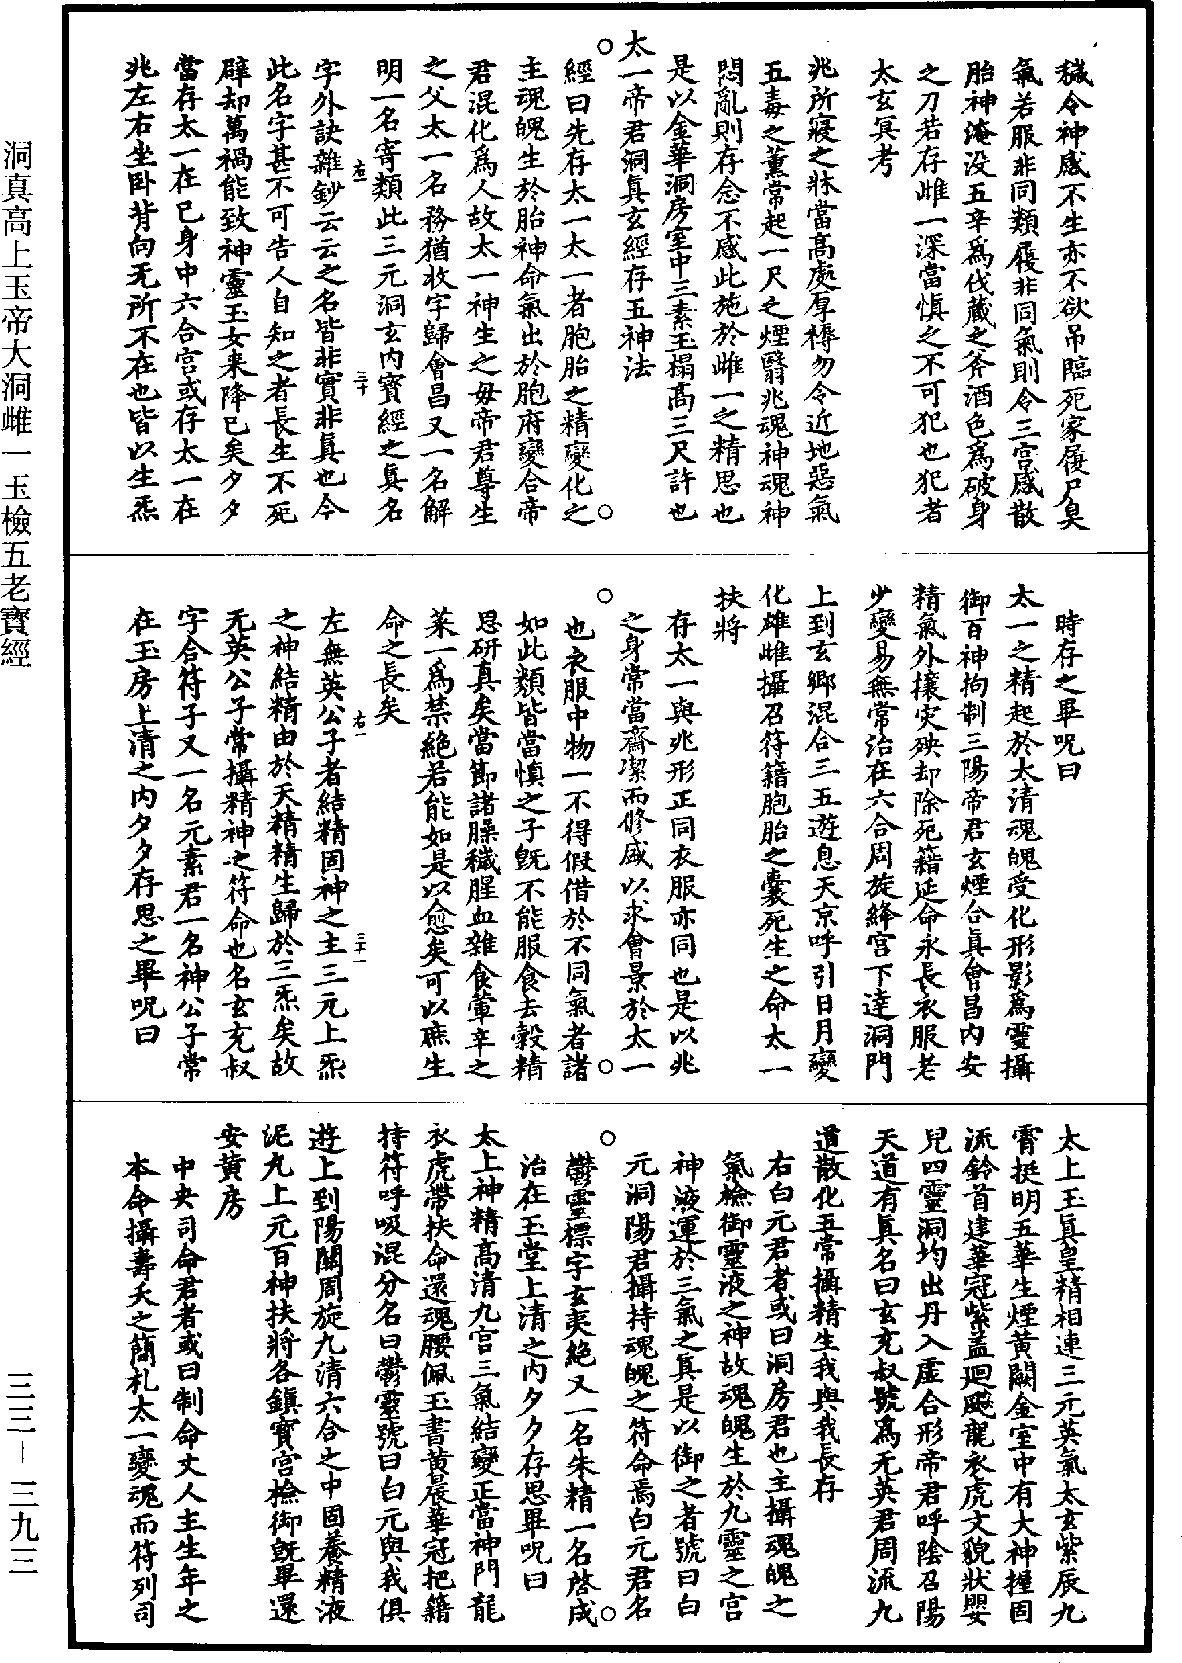 穢令神感不生亦不欲吊臨死家履尸臭
氣若服非同類履非同氣則令三宮感散
胎神淹没五辛爲伐藏之斧酒色爲破身
之刀若存雌一深當慎之不可犯也犯者
太玄冥考
兆所寢之牀當高處厚褥勿令近地惡氣
五毒之薰常起一尺之煙翳兆魂神魂神
悶亂則存念不感此施於雌一之精思也
是以金華洞房室中三素玉榻高三尺許也
太一帝君洞真玄經存五神法
經曰先存太一太一者胞胎之精變化之
主魂魄生於胎神命氣出於胞府變合帝
君混化爲人故太一神生之母帝君尊生
之父太一名務猶收字歸會昌又一名解
明一名寄類此三元洞玄內寶經之真名
左一
三十
字外訣雜鈔云云之名皆非實非真也今
此名字甚不可告人自知之者長生不死
辟却萬禍能致神靈玉女来降已矣夕夕
當存太一在已身中六合宮或存太一在
兆左右坐臥背向无所不在也皆以生炁
時存之畢呪曰
太一之精起於太清魂魄受化形影爲靈攝
御百神拘制三陽帝君玄煙合真會昌內安
精氣外攘灾殃却除死籍延命永長衣服老
少變易無常治在六合周旋絳宮下達洞門
上到玄鄉混合三五遊息天京呼引日月變
化雄雌攝召符籍胞胎之囊死生之命太一
扶將
存太一與兆形正同衣服亦同也是以兆
之身常當齋潔而修感以求會景於太一
也衣服中物一不得假借於不同氣者諸
如此類皆當慎之子既不能服食去穀精
思研真矣當節諸臊穢腥血雜食葷辛之
菜一爲禁絶若能如是以愈矣可以庶生
命之長矣
右一
三十一
左無英公子者結精固神之主三元上炁
之神結精由於天精精生歸於三炁矣故
无英公子常攝精神之符命也名玄充叔
字合符子又一名元素君一名神公子常
在玉房上清之內夕夕存思之畢呪曰
太上玉真皇精相連三元英氣太玄紫辰九
霄挺明五華生煙黃闕金室中有大神握固
流鈴首建華冠紫盖迴飈龍衣虎文貌狀嬰
兒四靈洞均出丹入虛合形帝君呼陰召陽
天道有真名曰玄充叔號爲无英君周流九
道散化五常攝精生我與我長存
右白元君者或曰洞房君也主攝魂魄之
氣檢御靈液之神故魂魄生於九靈之宮
神液運於三氣之真是以御之者號曰白
元洞陽君攝持魂魄之符命焉白元君名
鬱靈標字玄夷絶又一名朱精一名啓成
治在玉堂上清之內夕夕存思畢呪曰
太上神精高清九宮三氣結變正當神門龍
衣虎帶扶命還魂腰佩玉書黃晨華冠把籍
持符呼吸混分名曰鬱靈號曰白元與我俱
遊上到陽關周旋九清六合之中固養精液
泥丸上元百神扶將各鎮寶宮檢御既畢還
安黃房
中央司命君者或曰制命丈人主生年之
本命攝壽夭之簡札太一變魂而符列司
洞真高上玉帝大洞雌一玉檢五老寶經
三三-三九三